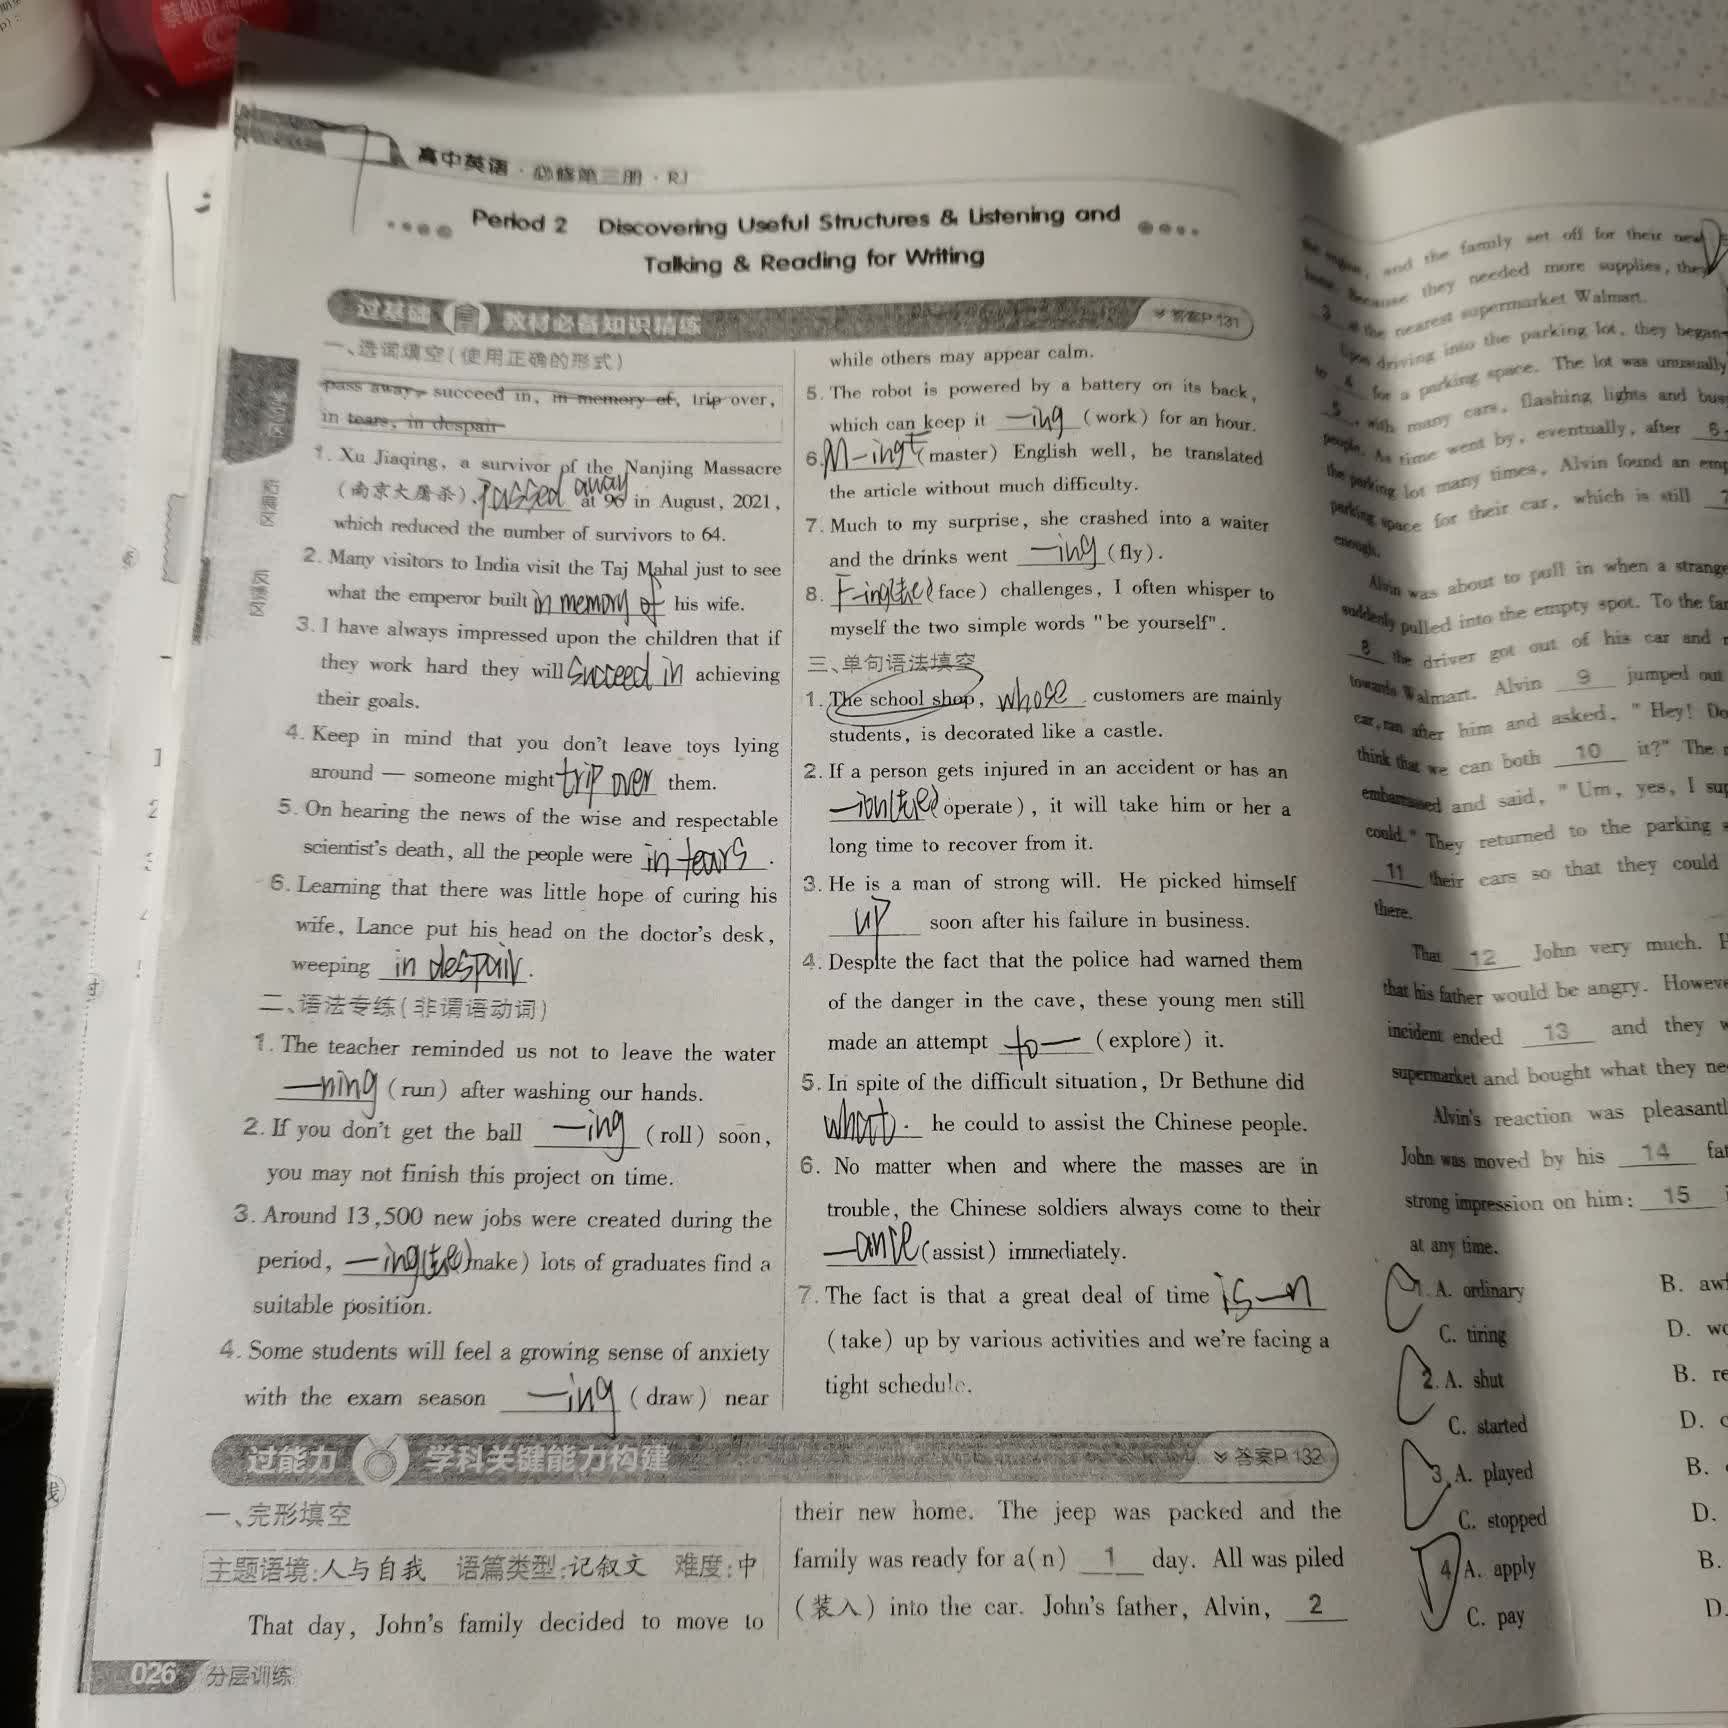 高中英语·必修第三册·RJ
Period 2 Discovering Useful Structures & Listening and
Talking & Reading for Writing
过基础 教材必备知识精练
答案P 131
一、选词填空(使用正确的形式)
pass away, succeed in, in memory of, trip over,
in tears, in despair
1. Xu Jiaqing, a survivor of the Nanjing Massacre
(南京大屠杀), Passed away at 96 in August, 2021,
which reduced the number of survivors to 64.
2. Many visitors to India visit the Taj Mahal just to see
what the emperor built in memory of his wife.
3. I have always impressed upon the children that if
they work hard they will succeed in achieving
their goals.
4. Keep in mind that you don't leave toys lying
around — someone might trip over them.
5. On hearing the news of the wise and respectable
scientist's death, all the people were in tears.
6. Learning that there was little hope of curing his
wife, Lance put his head on the doctor's desk,
weeping in despair.
二、语法专练(非谓语动词)
1. The teacher reminded us not to leave the water
—ning (run) after washing our hands.
2. If you don't get the ball —ing (roll) soon,
you may not finish this project on time.
3. Around 13,500 new jobs were created during the
period, —ing(去e) make) lots of graduates find a
suitable position.
4. Some students will feel a growing sense of anxiety
with the exam season —ing (draw) near
while others may appear calm.
5. The robot is powered by a battery on its back,
which can keep it —ing (work) for an hour.
6. M—ing (master) English well, he translated
the article without much difficulty.
7. Much to my surprise, she crashed into a waiter
and the drinks went —ing (fly).
8. F—ing(去e) (face) challenges, I often whisper to
myself the two simple words "be yourself".
三、单句语法填空
1. The school shop, whose customers are mainly
students, is decorated like a castle.
2. If a person gets injured in an accident or has an
—ion(去e) operate), it will take him or her a
long time to recover from it.
3. He is a man of strong will. He picked himself
up soon after his failure in business.
4. Despite the fact that the police had warned them
of the danger in the cave, these young men still
made an attempt to — (explore) it.
5. In spite of the difficult situation, Dr Bethune did
what he could to assist the Chinese people.
6. No matter when and where the masses are in
trouble, the Chinese soldiers always come to their
—ance (assist) immediately.
7. The fact is that a great deal of time is —n
(take) up by various activities and we're facing a
tight schedule.
过能力 学科关键能力构建
答案P 132
一、完形填空
主题语境:人与自我 语篇类型:记叙文 难度:中
That day, John's family decided to move to
their new home. The jeep was packed and the
family was ready for a(n) 1 day. All was piled
(装入) into the car. John's father, Alvin, 2
026 分层训练
and the family set off for their new
they needed more supplies, they
3 the nearest supermarket Walmart.
Upon driving into the parking lot, they began
to 4 for a parking space. The lot was unusually
5, with many cars, flashing lights and
people. As time went by, eventually, after 6
the parking lot many times, Alvin found an
parking space for their car, which is still
enough.
Alvin was about to pull in when a strange
suddenly pulled into the empty spot. To the
8 the driver got out of his car and
towards Walmart. Alvin 9 jumped out
car, ran after him and asked, "Hey!
think that we can both 10 it?" The
embarrassed and said, "Um, yes, I
could." They returned to the parking
11 their cars so that they could
there.
That 12 John very much.
that his father would be angry.
incident ended 13 and they
supermarket and bought what they
Alvin's reaction was
John was moved by his 14
strong impression on him: 15
at any time.
1. A. ordinary B.
C. tiring D.
2. A. shut B.
C. started D.
3. A. played B.
C. stopped D.
4. A. apply B.
C. pay D.